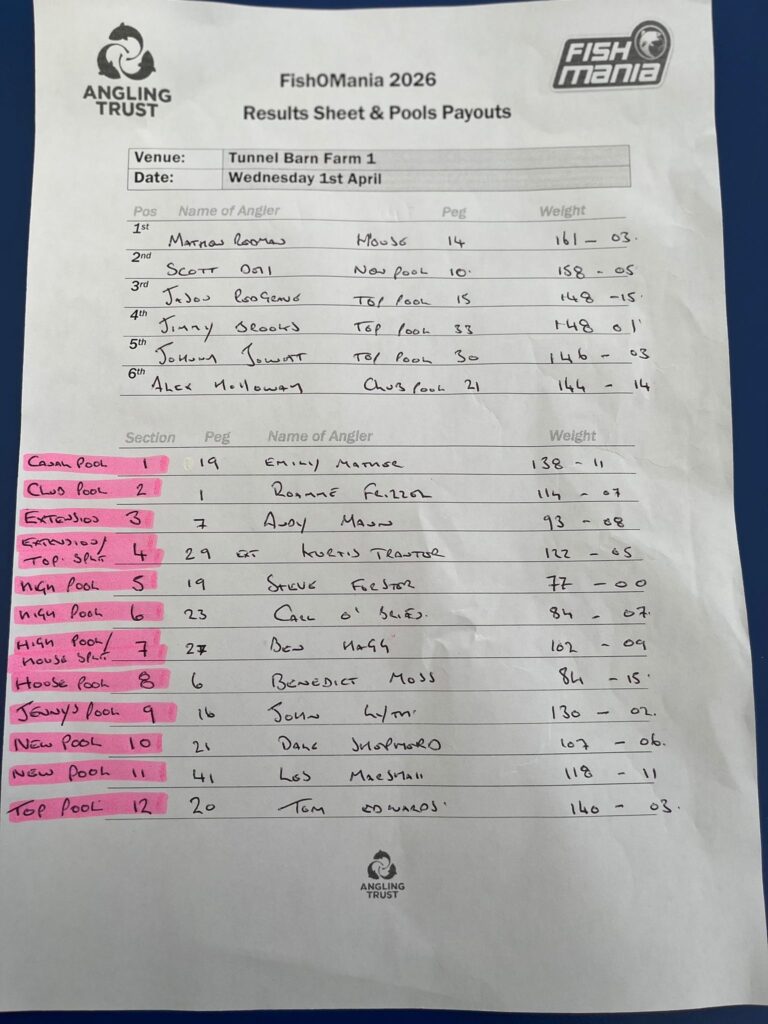 ANGLING
TRUST
FISH
MANIA
FishOMania 2026
Results Sheet & Pools Payouts
Venue: Tunnel Barn Farm 1
Date: Wednesday 1st April
Pos Name of Angler Peg Weight
1st HOUSE 14 161 - 03.
2nd SCOTT NEW POOL 10. 158 - 05
3rd JASON REDGRAVE TOP POOL 15 148 - 15.
4th JIMMY BROOKS TOP POOL 33 148 01
5th JOHNNY JOWETT TOP POOL 30 146 - 03
6th ALEX HOLLOWAY CLUB POOL 21 144 - 14
Section Peg Name of Angler Weight
CANAL POOL 1 19 EMILY MATHER 138 - 11
CLUB POOL 2 1 114 - 07
EXTENSION 3 7 ANDY MANN 93 - 08
EXTENSION/
TOP SPLIT 4 29 EXT KURTIS TRANTOR 122 - 05
HIGH POOL 5 19 STEVE FORSTER 77 - 00
HIGH POOL 6 23 84 - 07.
HIGH POOL/
HOUSE SPLIT 7 27 BEN HAGG 102 - 09
HOUSE POOL 8 6 BENEDICT MOSS 84 - 15.
JENNYS POOL 9 16 JOHN 130 - 02.
NEW POOL 10 21 DALE SHEPHERD 107 - 06.
NEW POOL 11 41 LES MARSHALL 118 - 11
TOP POOL 12 20 TOM EDWARDS. 140 - 03.
ANGLING
TRUST